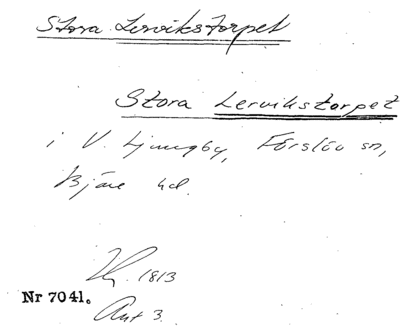 Stora Lervikstorpet
Stora Lervikstorpet
i V. Ljungby, Förslöv sn,
Bjäre hd.
1813
Nr 7041.
Ant 3.